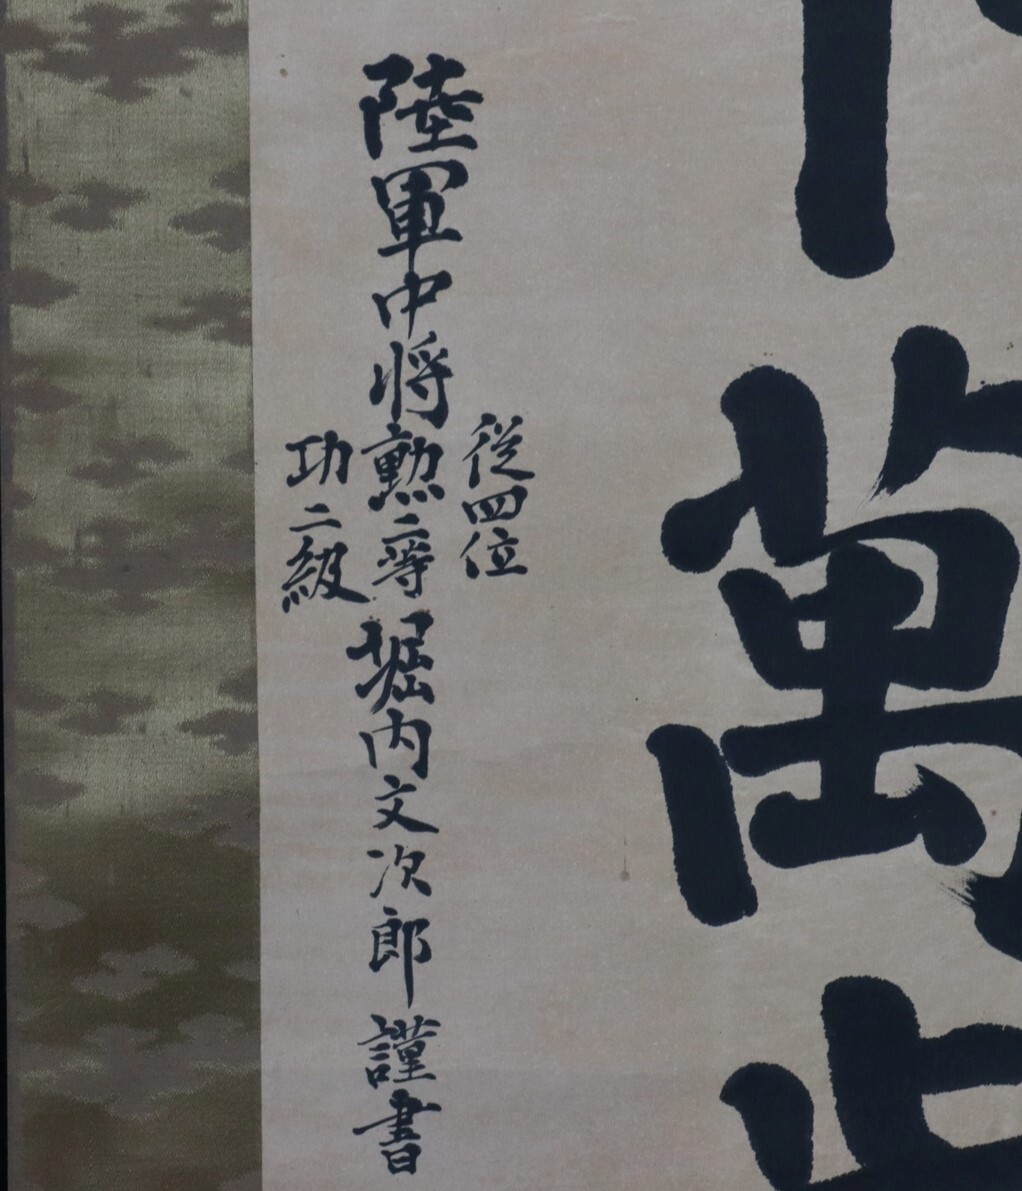 萬
陸軍中将
従四位
勲二等
功二級
堀内文次郎謹書